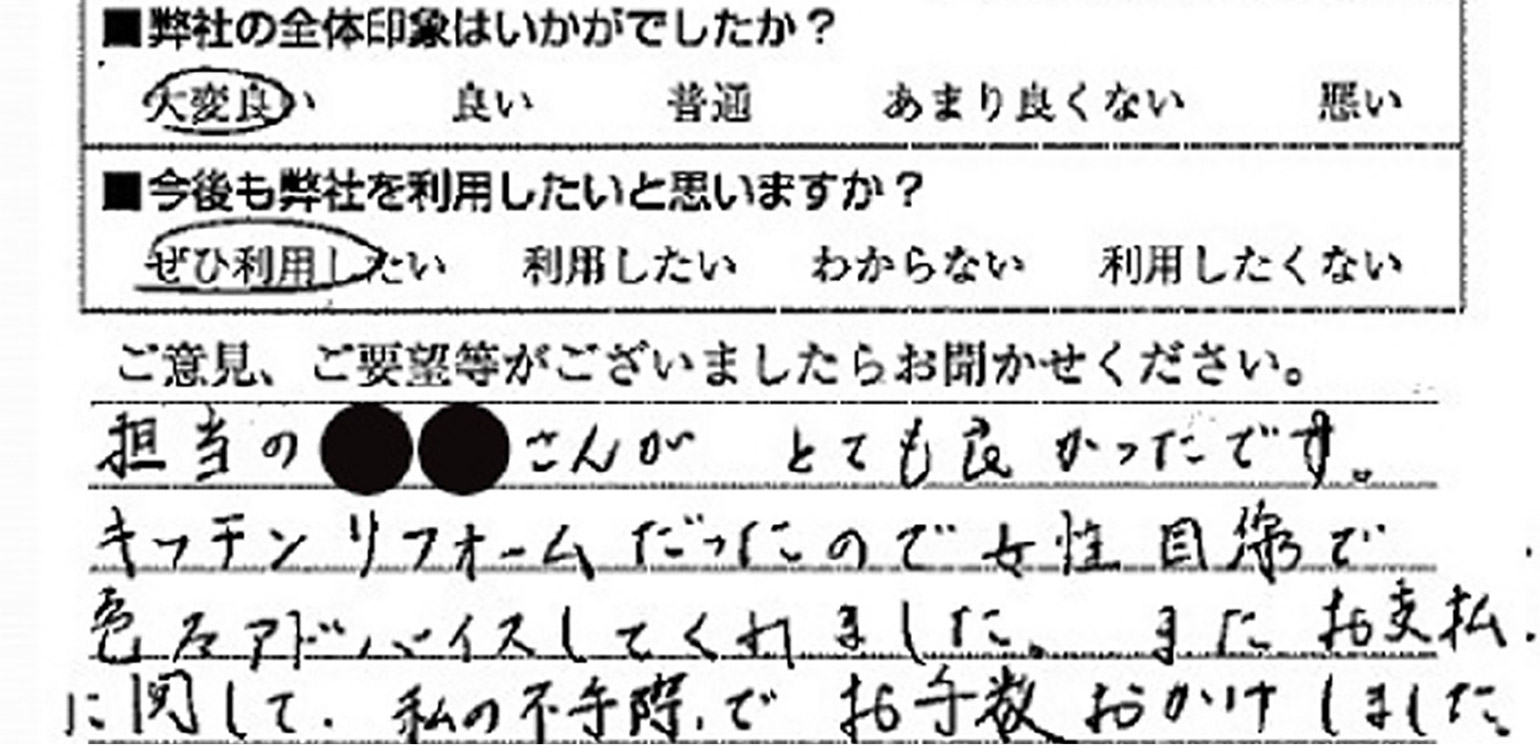 ■弊社の全体印象はいかがでしたか？
大変良い 良い 普通 あまり良くない 悪い
■今後も弊社を利用したいと思いますか？
ぜひ利用したい 利用したい わからない 利用したくない
ご意見、ご要望等がございましたらお聞かせください。
担当の●●さんが とても良かったです。
キッチンリフォームだったので女性目線で
色々アドバイスしてくれました。またお支払
に関して、私の不手際で お手数おかけしました